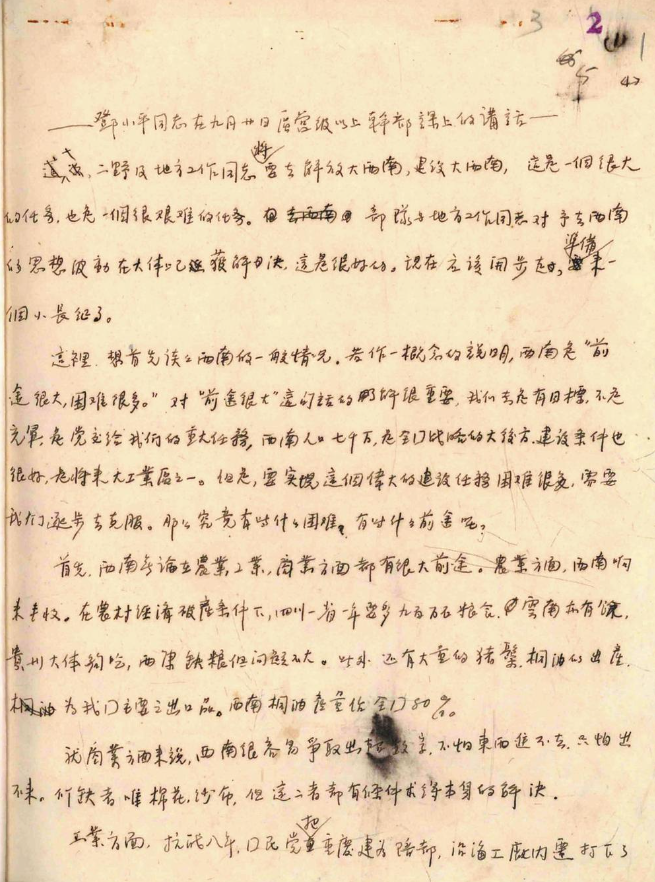 3 2 1
45
——鄧小平同志在九月廿日區營級以上幹部課上的講話——
二野及地方工作同志將要去解放大西南,建設大西南,這是一個很大
的任務,也是一個很艱難的任務。部隊与地方工作同志对于去西南
的思想波動在大体上已經獲得解决,這是很好的。現在应該開步走,準備來一
個小長征了。
這裡想首先谈谈西南的一般情况。若作一概念的說明,西南是“前
途很大,困难很多。”对“前途很大”這句話的了解很重要,我们去是有目標,不是
充軍,是党交給我们的重大任務,西南人口七千万,是全口战略的大後方,建設条件也
很好,是將来大工業區之一。但是,要实現這個偉大的建設任務困难很多,需要
我们逐步去克服。那么究竟有些什么困难?有些什么前途呢?
首先,西南無論在農業工業,商業方面都有很大前途。農業方面,西南啊
来丰收。在農村经濟破產条件下,四川一省一年要多九百万石粮食,雲南亦有餘,
貴州大体夠吃,西康缺粮但问题不大。此外还有大量的猪鬃、桐油的出產,
桐油为我口主要之出口品。西南桐油產量佔全口80%。
就商業方面来說,西南很容易爭取出超,不怕東西進不去,只怕出
不来。所缺者唯棉花,沙布,但這二者都有条件求得本身的解决。
工業方面,抗战八年,口民党把重慶建为陪都,沿海工廠内遷打下了